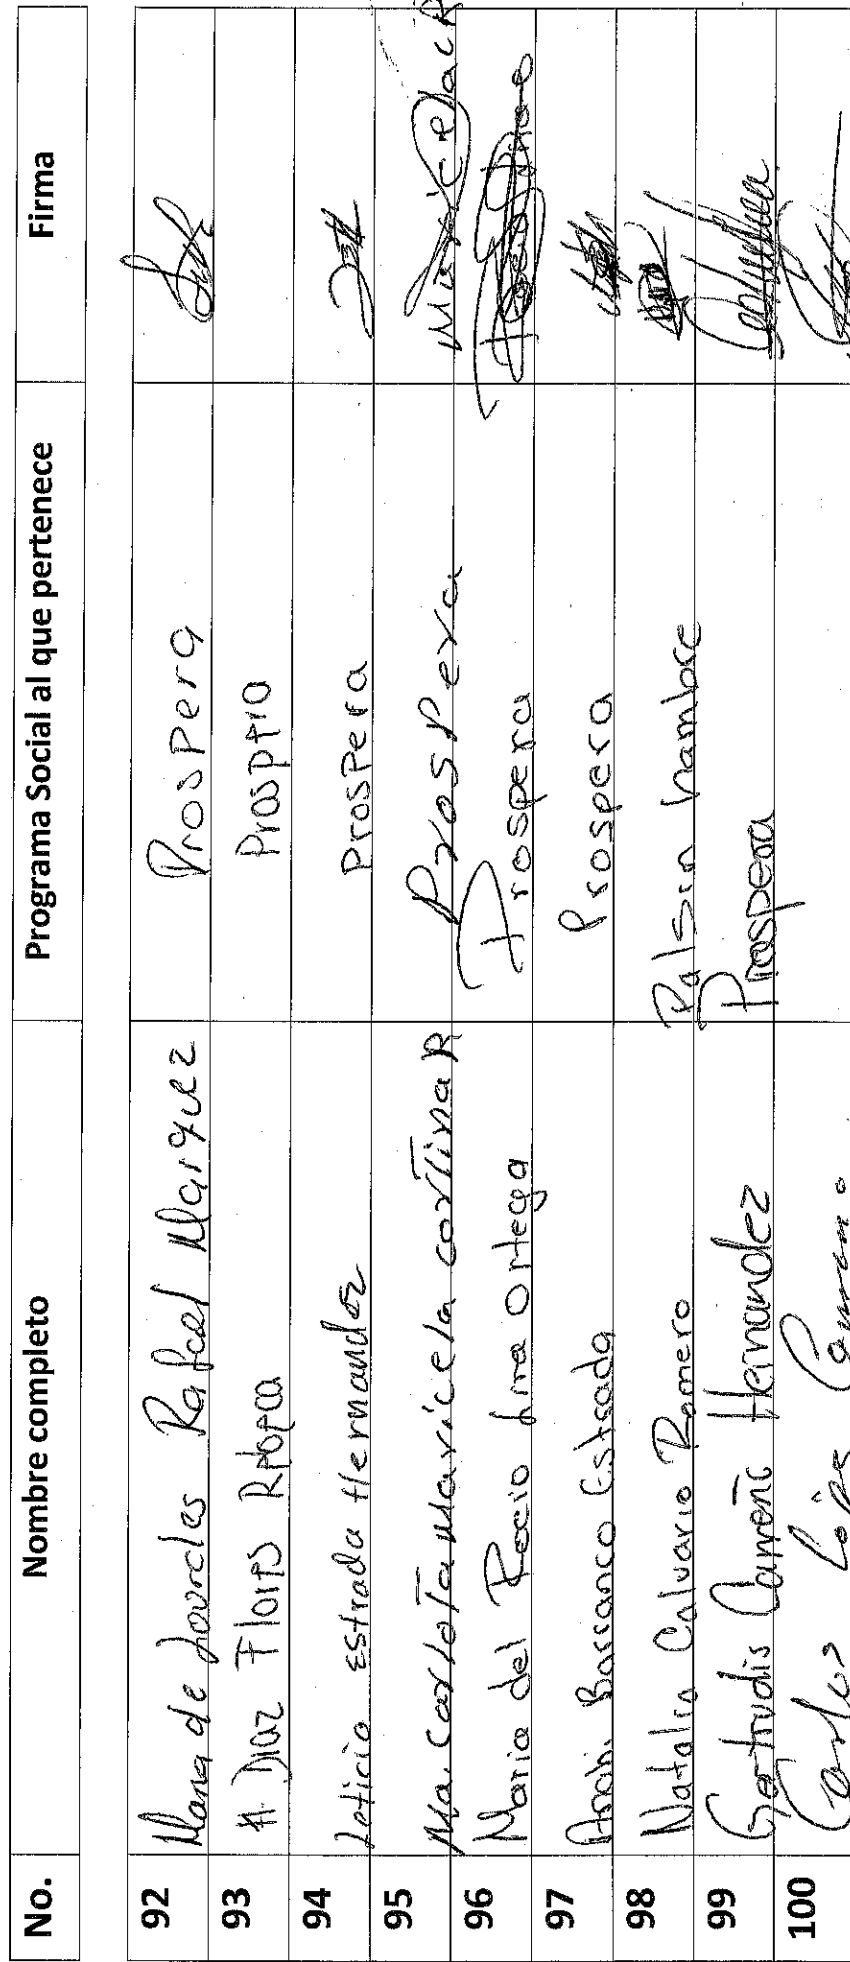 No. Nombre completo Programa Social al que pertenece Firma
92 Maria de Lourdes Rafael Marquez Prospera
93 H. Diaz Flores Prospera
94 Leticia Estrada Hernandez Prospera
95 Ma. Carlota Maricela cortina R Prospera
96 Maria del Rocio Lira Ortega Prospera
97 Barranco Estrada Prospera
98 Natalia Calvario Romero Pal sin hambre
99 Gertrudis Carreño Hernandez Prospera
100 Carlos